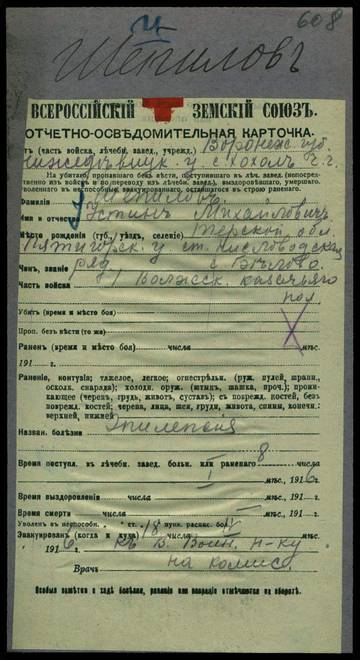 608
Шепиловъ
ВСЕРОССІЙСКІЙ ЗЕМСКІЙ СОЮЗЪ.
ОТЧЕТНО-ОСВѢДОМИТЕЛЬНАЯ КАРТОЧКА.
(часть войска, лечебн. завед. учрежд.) Воронеж. губ.
Нижнедѣвицк. у с. Хохолъ
На убитаго, пропавшаго безъ вѣсти, поступившаго въ леч. завед. (непосредственно
изъ войскъ и по переводу изъ лечебн. завед.), выздоровѣвшаго, умершаго,
уволеннаго въ неспособные, эвакуированнаго, оставшагося въ строю раненаго.
Фамилія Шепиловъ
Имя и отчество Устинъ Михайловичъ
Мѣсто рожденія (губ., уѣздъ, селеніе) Терской обл.
Пятигорск. у ст. Кисловодская
Чинъ, званіе ряд.
Часть войска 1 Волжск. казачьяго
пол
Убитъ (время и мѣсто боя)
Проп. безъ вѣсти (то же)
Раненъ (время и мѣсто боя) числа мѣс.
191 г.
Раненіе, контузія: тяжелое, легкое; огнестрѣльн. (руж. пулей, шрапн.,
осколк. снаряда); холодн. оруж. (штык., шашка, проч.); прони-
кающее (черепъ, грудь, животъ, суставъ); съ поврежд. костей, безъ
поврежд. костей; черепа, лица, шеи, груди, живота, спины, конечн.:
верхней, нижней
Назван. болѣзни Эпилепсія
Время поступл. въ лечебн. завед. больн. или раненаго 8 числа
I мѣс., 1916 г.
Время выздоровленія числа мѣс., 191 г.
Время смерти числа мѣс., 191 г.
Уволенъ въ неспособн. ст. 18 пунк. распис. бол.
Эвакуированъ (когда и куда) IV мѣс.,
1916 къ В. Воин. Н-ку
Врачъ на комис.
Особыя замѣтки о ходѣ болѣзни, раненія или операціи отмѣчаются на оборотѣ.